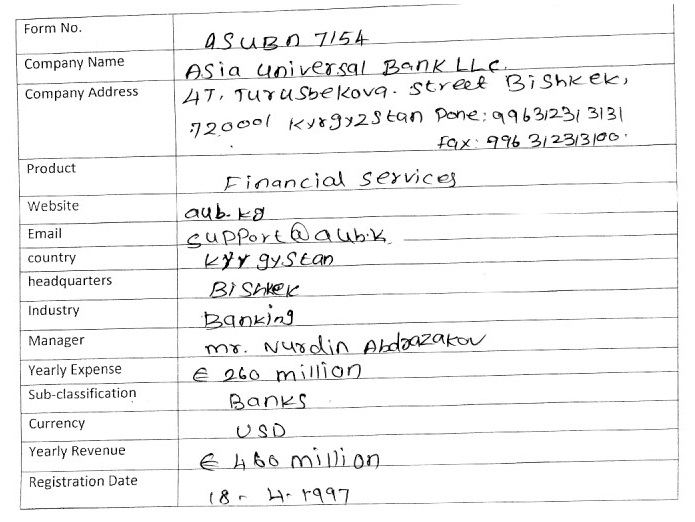 Form No. ASUBN 7154
Company Name Asia Universal Bank LLC.
Company Address 47, Turusbekova. street Bishkek,
720001 Kyrgyzstan Pone: 996312313131
Fax: 996312313100.
Product Financial services
Website aub.kg
Email support@aub.k
country Kyrgystan
headquarters Bishkek
Industry Banking
Manager mr. Nurdin Abdrazakov
Yearly Expense € 260 million
Sub-classification Banks
Currency USD
Yearly Revenue € 460 million
Registration Date 18-4-1997